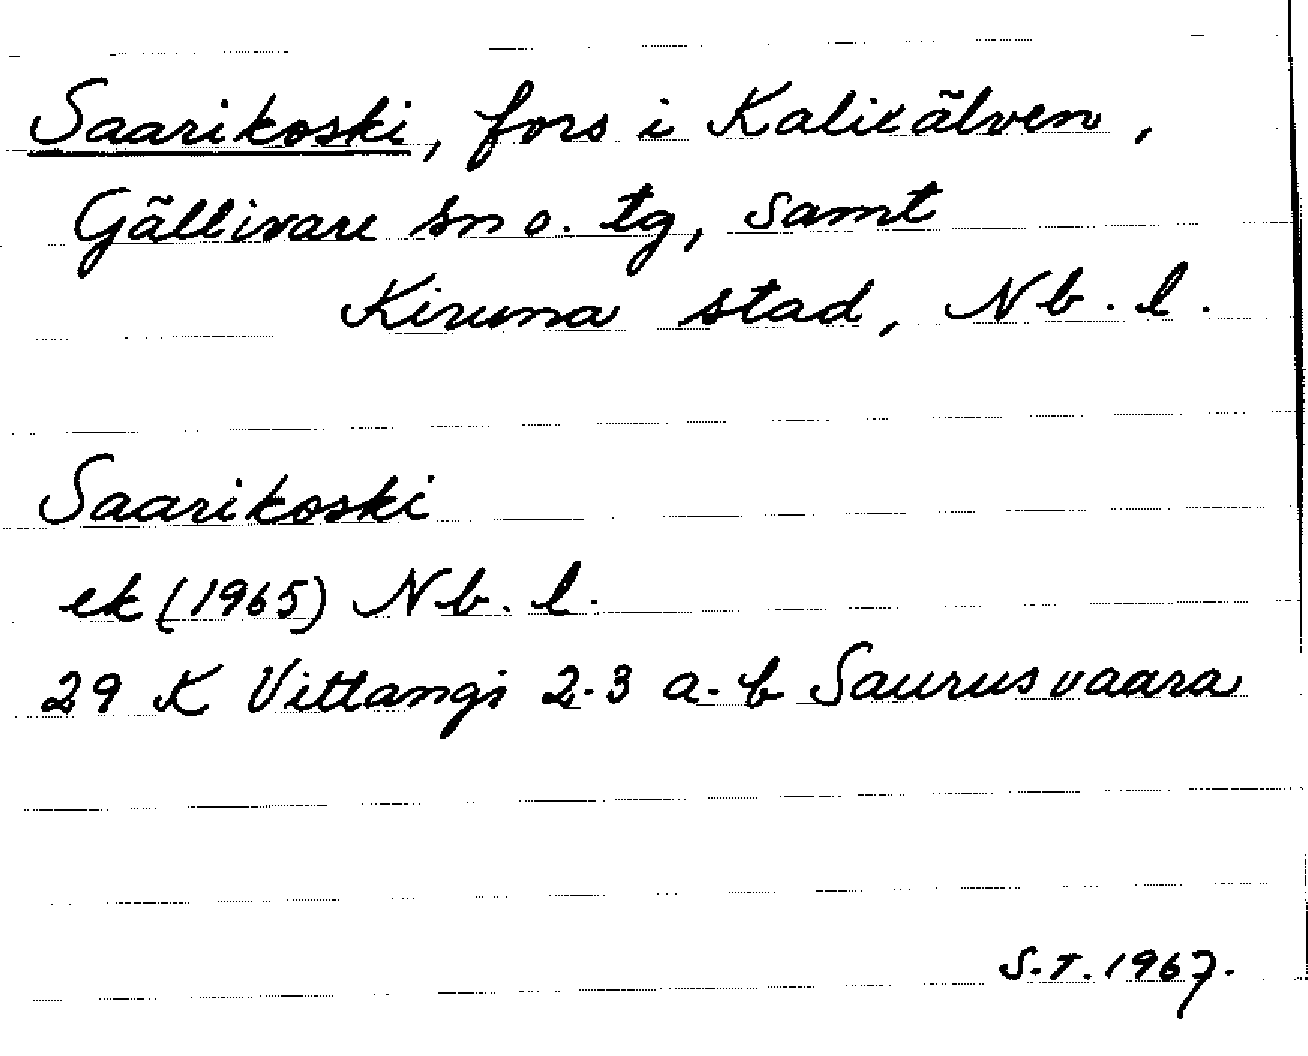 Saarikoski, fors i Kalixälven,
Gällivare sn o. tg, samt
Kiruna stad, Nb. l.
Saarikoski
ek (1965) Nb. l.
29 K Vittangi 2-3 a-b Saurusvaara
S.T. 1967.